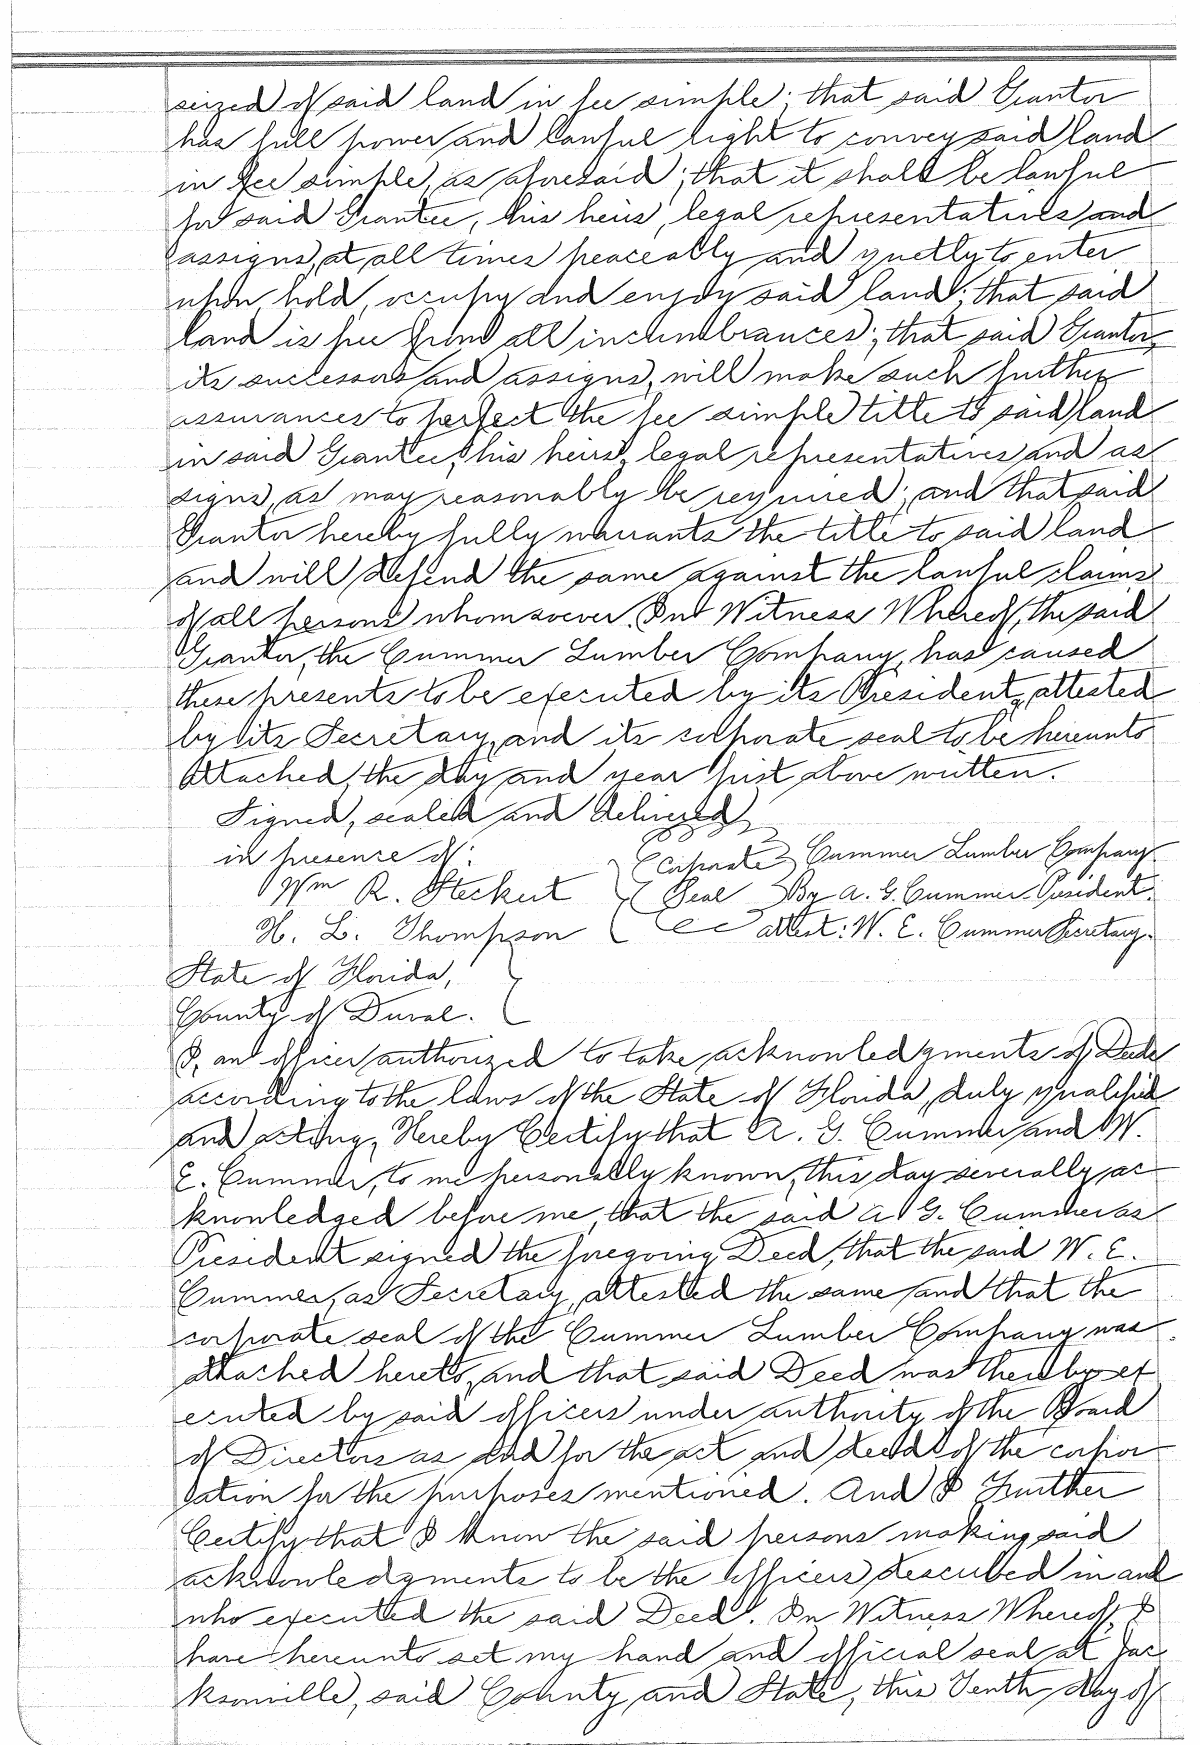 seized of said land in fee simple; that said Grantor
has full power and lawful right to convey said land
in fee simple, as aforesaid; that it shall be lawful
for said Grantee, his heirs, legal representatives and
assigns, at all times peaceably and quetly to enter
upon, hold, occupy and enjoy said land; that said
land is free from all incumbrances; that said Grantor,
its successors and assigns, will make such further
assurances to perfect the fee simple title to said land
in said Grantee, his heirs, legal representatives and as
signs, as may reasonably be required; and that said
Grantor hereby fully warrants the title to said land
and will defend the same against the lawful claims
of all persons whomsoever. In Witness Whereof, the said
Grantor, the Cummer Lumber Company, has caused
these presents to be executed by its President, attested
by its Secretary, and its corporate seal to be hereunto
attached, the day and year first above written.
Signed, sealed and delivered
in presence of: (Corporate) Cummer Lumber Company
Wm R. Steckert (Seal) By A. G. Cummer President.
H. L. Thompson attest: W. E. Cummer Secretary.
State of Florida,
County of Duval.
I, an officer authorized to take acknowledgments of Deeds
according to the laws of the State of Florida, duly qualified
and acting, Hereby Certify that A. G. Cummer and W.
E. Cummer, to me personally known, this day severally ac
knowledged before me, that the said A. G. Cummer as
President signed the foregoing Deed, that the said W. E.
Cummer, as Secretary, attested the same and that the
corporate seal of the Cummer Lumber Company was
attached hereto, and that said Deed was thereby ex
ecuted by said officers under authority of the Board
of Directors as and for the act and deed of the corpor
ation for the purposes mentioned. And I Further
Certify that I know the said persons making said
acknowledgments to be the officers described in and
who executed the said Deed. In Witness Whereof, I
have hereunto set my hand and official seal at Jac
ksonville, said County and State, this Tenth day of